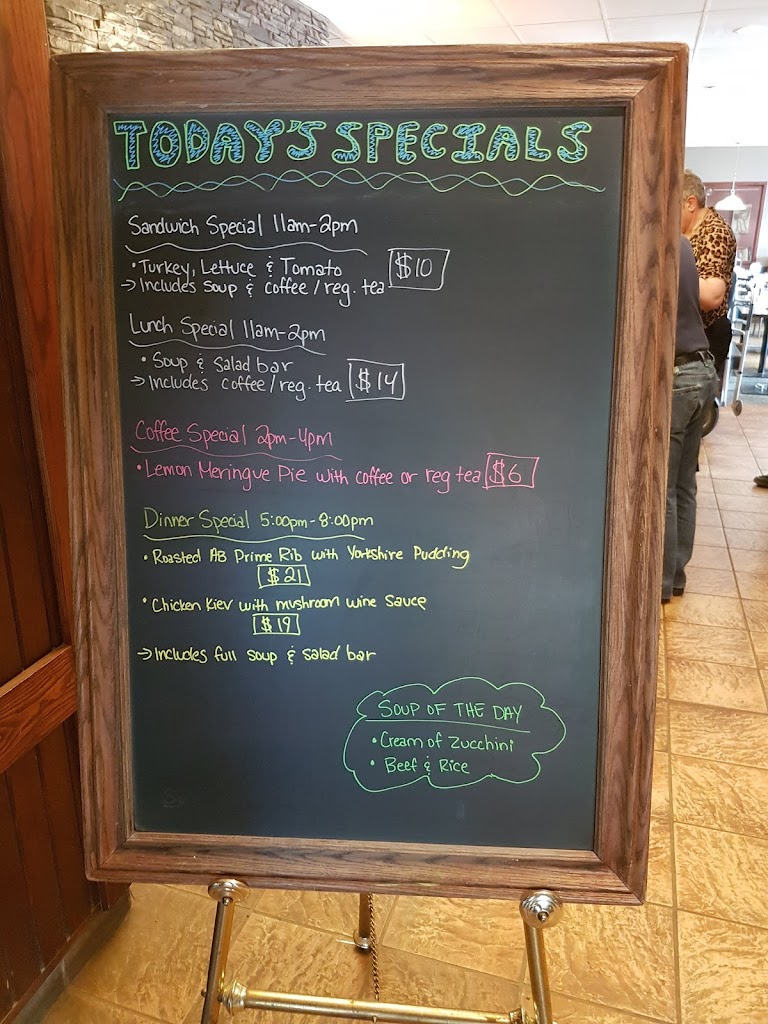 TODAY'S SPECIALS
Sandwich Special 11am-2pm
• Turkey, Lettuce & Tomato
→ Includes soup & coffee/reg. tea $10
Lunch Special 11am-2pm
• Soup & Salad bar
→ Includes coffee/reg. tea $14
Coffee Special 2pm-4pm
• Lemon Meringue Pie with coffee or reg tea $6
Dinner Special 5:00pm-8:00pm
• Roasted AB Prime Rib with Yorkshire Pudding
$21
• Chicken Kiev with mushroom wine sauce
$19
→ Includes full soup & salad bar
SOUP OF THE DAY
• Cream of Zucchini
• Beef & Rice